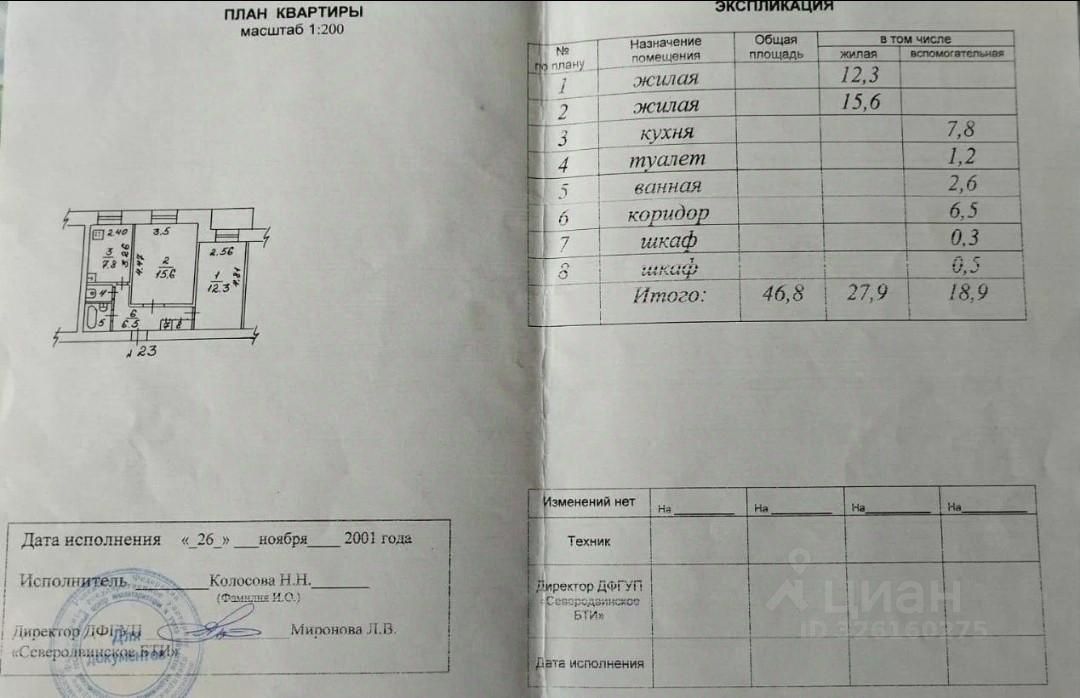 ПЛАН КВАРТИРЫ
масштаб 1:200
2.40
3.5
2.56
3
7.8
3.26
4.47
2
15.6
1
12.3
4.81
4
5
6
6.5
7
8
23
Дата исполнения «_26_» ___ноября____ 2001 года
Исполнитель Колосова Н.Н.
(Фамилия И.О.)
Директор ДФГУП Миронова Л.В.
«Северодвинское БТИ»
Для
документов
ЭКСПЛИКАЦИЯ
№ по плану Назначение помещения Общая площадь в том числе
жилая вспомогательная
1 жилая 12,3
2 жилая 15,6
3 кухня 7,8
4 туалет 1,2
5 ванная 2,6
6 коридор 6,5
7 шкаф 0,3
8 шкаф 0,5
Итого: 46,8 27,9 18,9
Изменений нет На На На На
Техник
Директор ДФГУП
«Северодвинское
БТИ»
Дата исполнения
Циан
ID 326160275